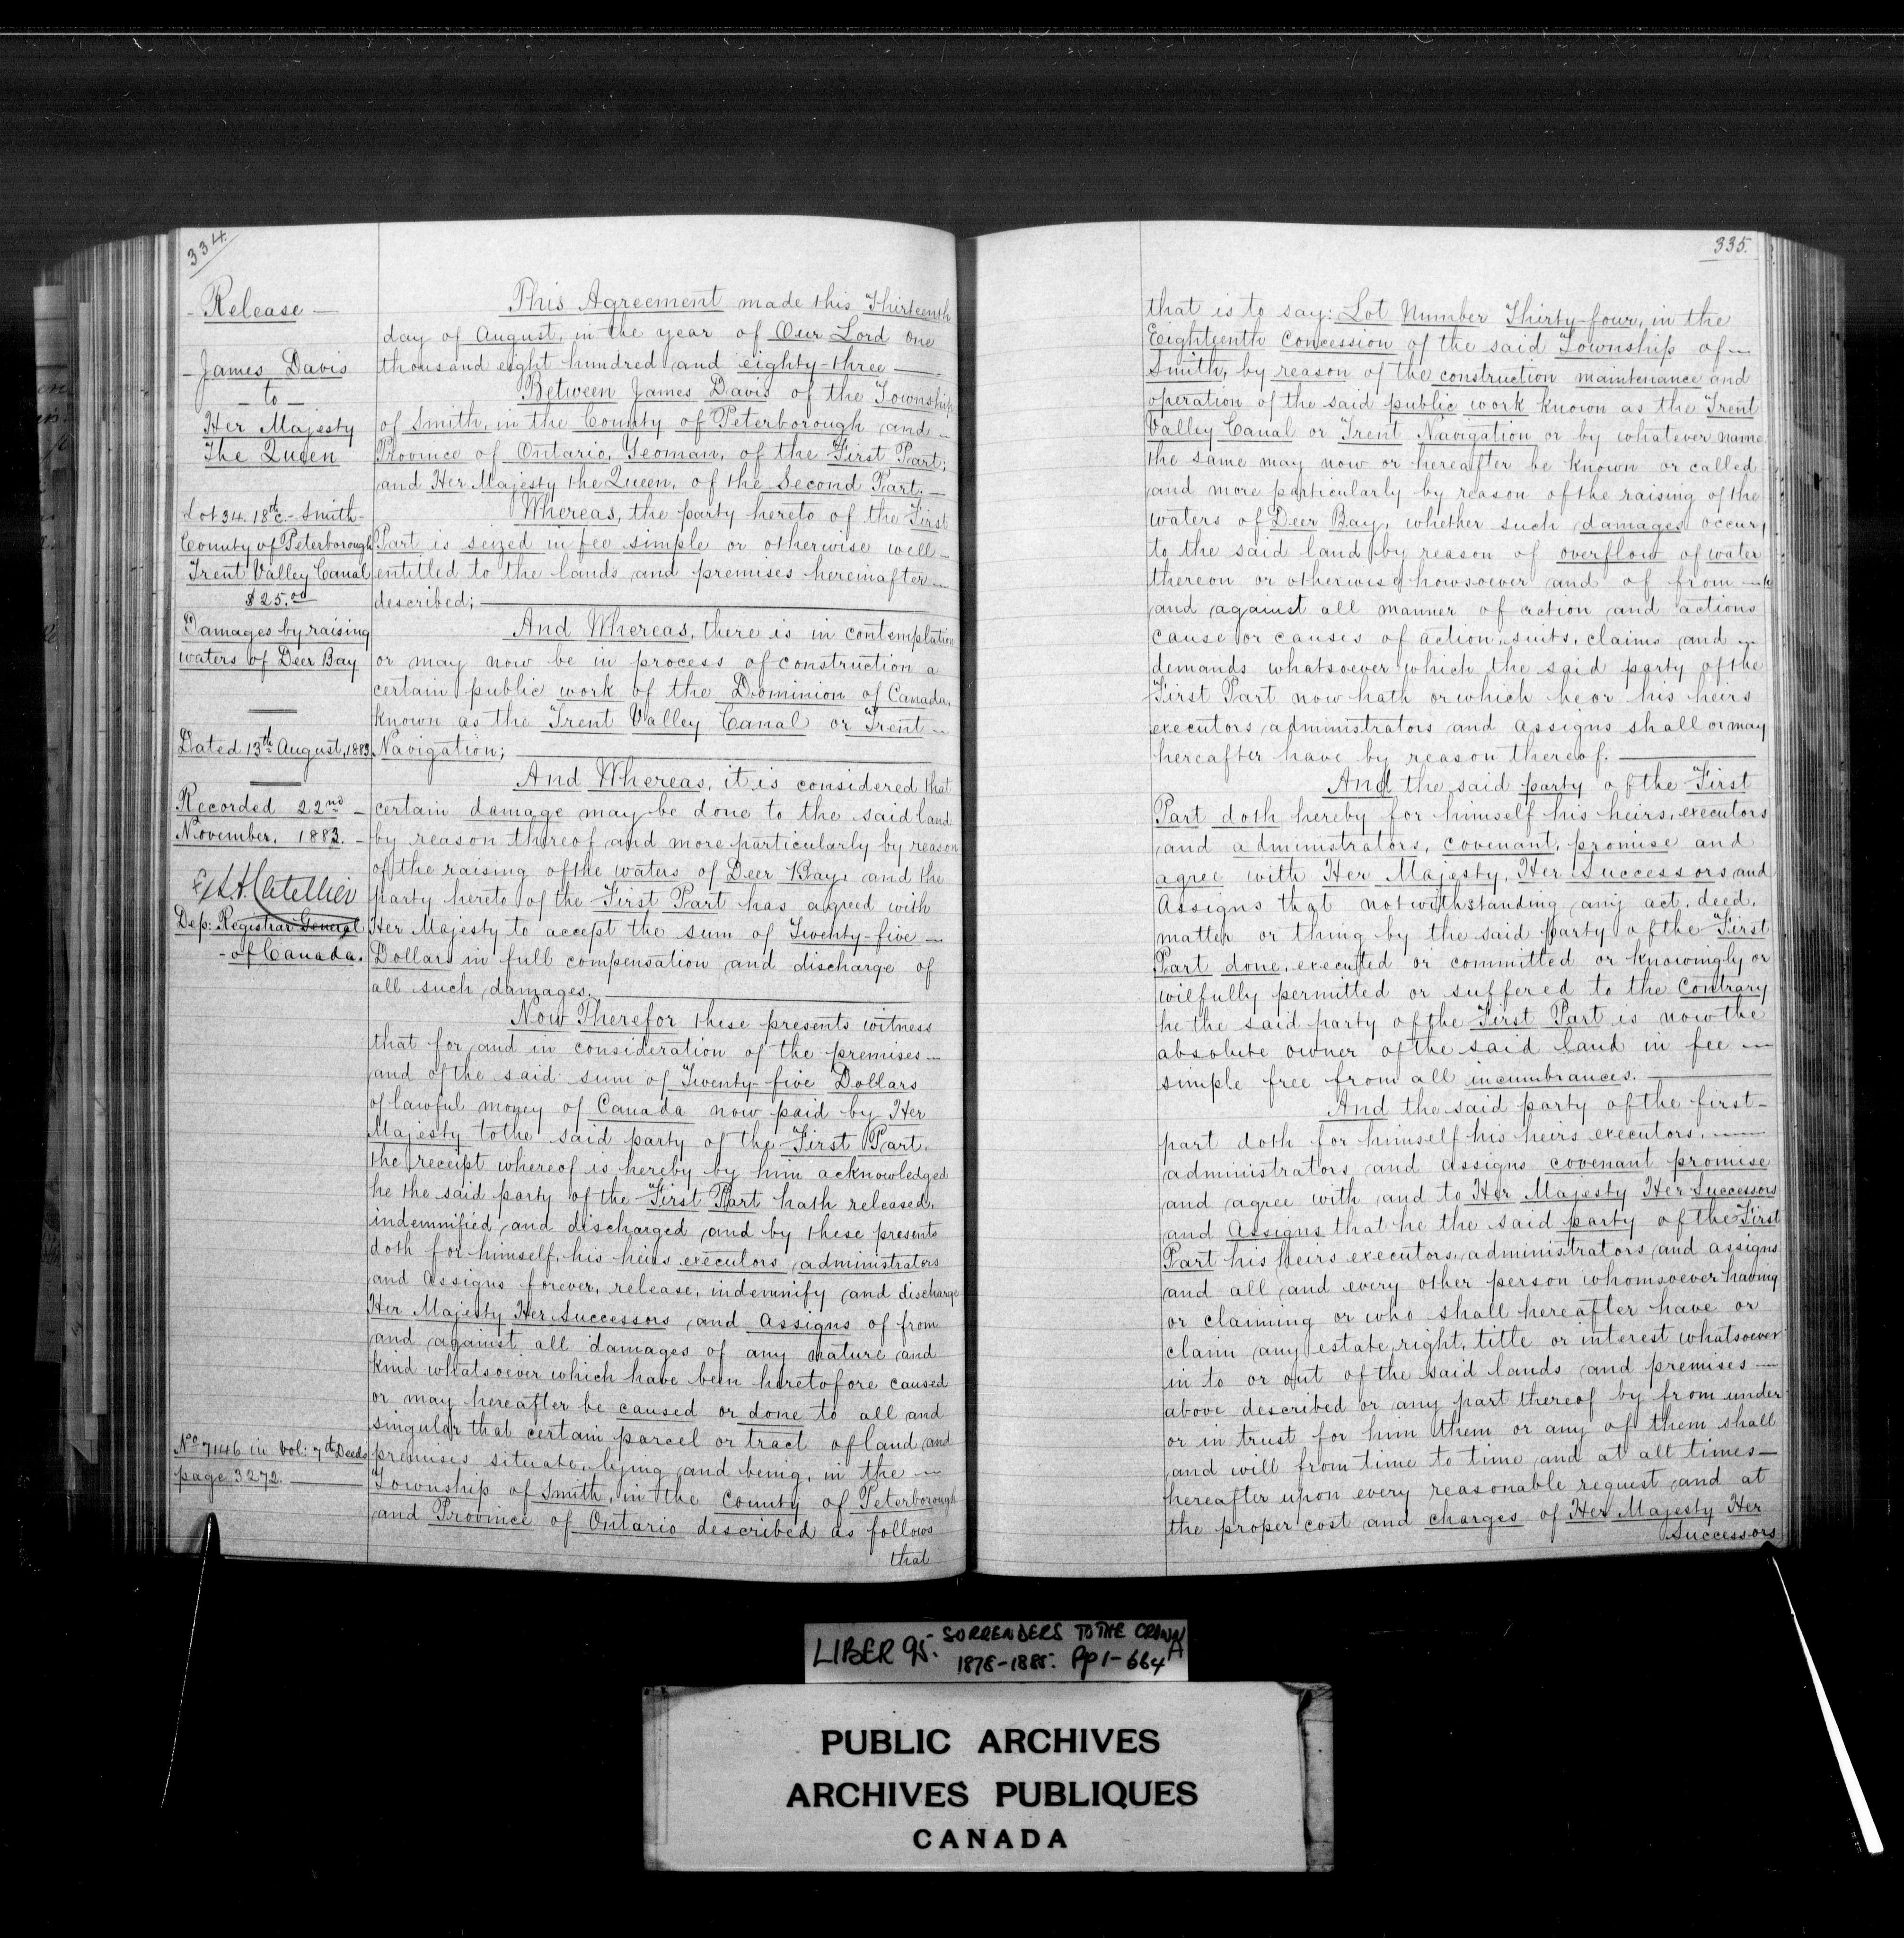 334.
- Release -
- James Davis
- to -
Her Majesty
The Queen
Lot 34. 18th c. - Smith -
County of Peterborough
Trent Valley Canal
$25.00
Damages by raising
waters of Deer Bay
Dated 13th August, 1883.
Recorded 22nd -
November, 1883. -
Dep: Registrar General
- of Canada.
No 7146 in Vol: 7th Deeds
page 3272.
This Agreement made this Thirteenth
day of August, in the year of Our Lord One
thousand eight hundred and eighty-three —
Between James Davis of the Township
of Smith, in the County of Peterborough and -
Province of Ontario, Yeoman, of the First Part;
and Her Majesty the Queen, of the Second Part. -
Whereas, the party hereto of the First
Part is seized in fee simple or otherwise well -
entitled to the lands and premises hereinafter -
described; —
And Whereas, there is in contemplation
or may now be in process of construction a
certain public work of the Dominion of Canada,
known as the Trent Valley Canal or Trent -
Navigation; —
And Whereas, it is considered that
certain damage may be done to the said land
by reason thereof and more particularly by reason
of the raising of the waters of Deer Bay, and the
party hereto of the First Part has agreed with
Her Majesty to accept the sum of Twenty-five -
Dollars in full compensation and discharge of
all such damages. —
Now Therefor these presents witness
that for and in consideration of the premises -
and of the said sum of Twenty-five Dollars
of lawful money of Canada now paid by Her
Majesty to the said party of the First Part,
the receipt whereof is hereby by him acknowledged
he the said party of the First Part hath released,
indemnified and discharged and by these presents
doth for himself, his heirs executors, administrators
and assigns forever, release, indemnify and discharge
Her Majesty Her Successors and Assigns of from
and against all damages of any nature and
kind whatsoever which have been heretofore caused
or may hereafter be caused or done to all and
singular that certain parcel or tract of land and
premises situate, lying and being, in the -
Township of Smith, in the County of Peterborough
and Province of Ontario described as follows
that
335.
that is to say: Lot Number Thirty-four, in the
Eighteenth Concession of the said Township of -
Smith, by reason of the construction maintenance and
operation of the said public work known as the Trent
Valley Canal or Trent Navigation or by whatever name
the same may now or hereafter be known or called
and more particularly by reason of the raising of the
waters of Deer Bay, whether such damages occur,
to the said land by reason of overflow of water
thereon or otherwise howsoever and of from -
and against all manner of action and actions
cause or causes of action, suits, claims and -
demands whatsoever which the said party of the
First Part now hath or which he or his heirs
executors, administrators and assigns shall or may
hereafter have by reason thereof. —
And the said party of the First
Part doth hereby for himself his heirs, executors
and administrators, covenant, promise and
agree with Her Majesty, Her Successors and
Assigns that notwithstanding any act, deed,
matter or thing by the said party of the First
Part done, executed or committed or knowingly or
wilfully permitted or suffered to the Contrary
he the said party of the First Part is now the
absolute owner of the said land in fee -
simple free from all incumbrances. —
And the said party of the first -
part doth for himself his heirs executors, —
administrators and assigns covenant promise
and agree with and to Her Majesty Her Successors
and Assigns that he the said party of the First
Part his heirs executors, administrators and assigns
and all and every other person whomsoever having
or claiming or who shall hereafter have or
claim any estate, right, title or interest whatsoever
in to or out of the said lands and premises -
above described or any part thereof by from under
or in trust for him them or any of them shall
and will from time to time and at all times -
hereafter upon every reasonable request and at
the proper cost and charges of Her Majesty Her
Successors
LIBER 95. SURRENDERS TO THE CROWN
1878-1885. Pp 1-664A
PUBLIC ARCHIVES
ARCHIVES PUBLIQUES
CANADA